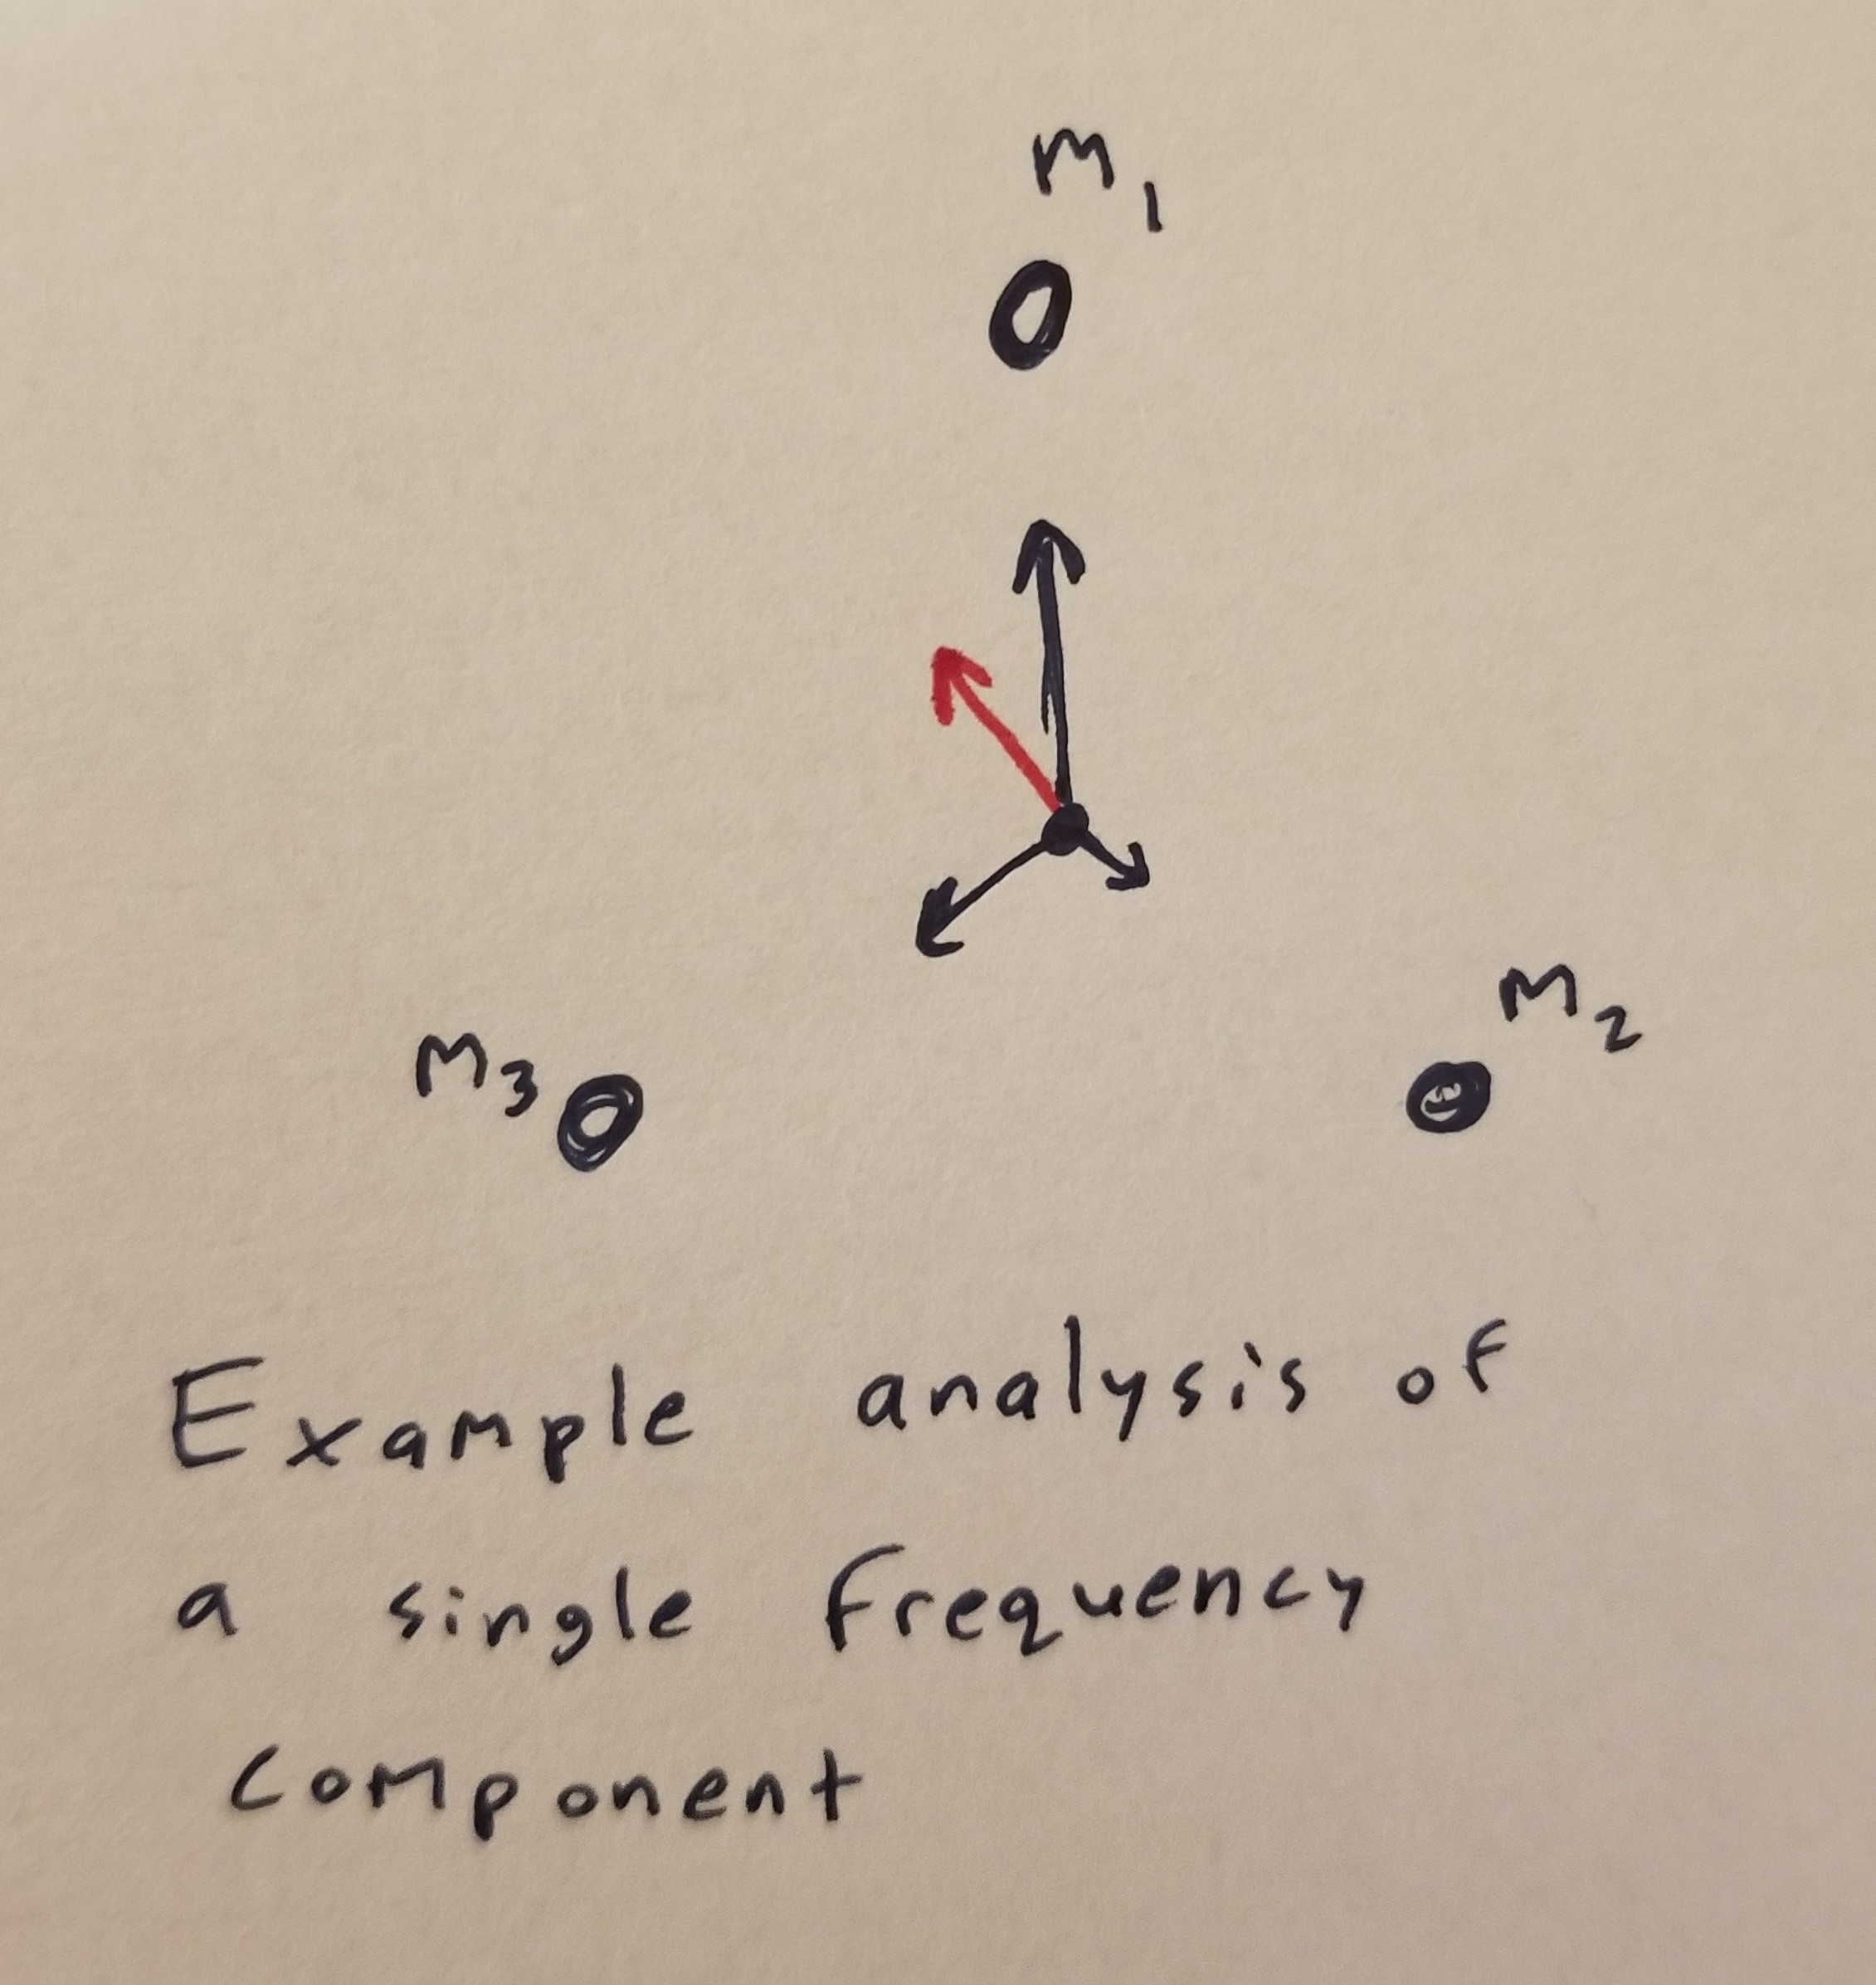 M1
M2
M3
Example analysis of
a single frequency
component